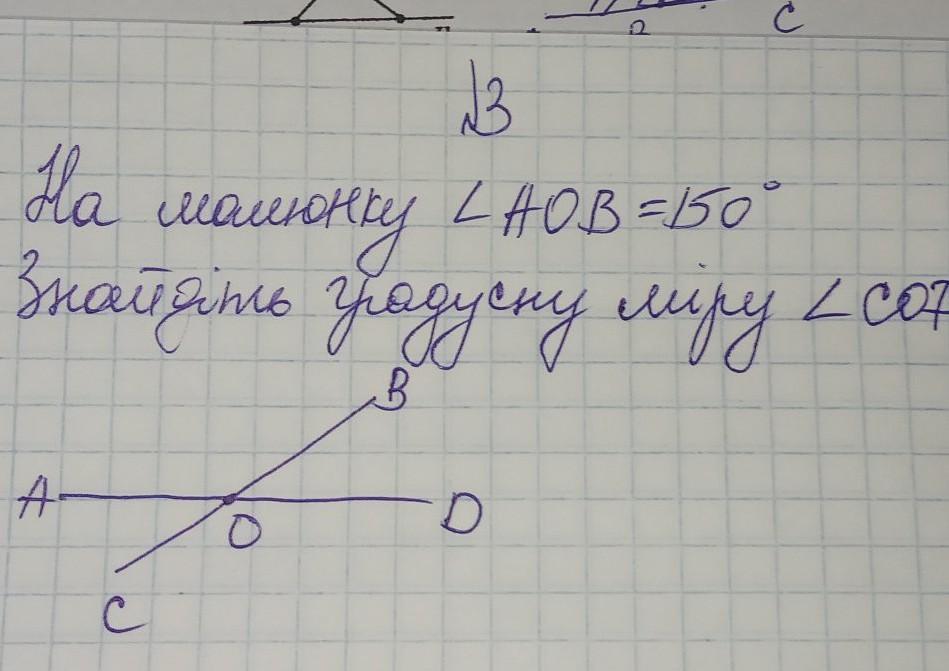 C
№3
На малюнку ∠AOB=150°
Знайдіть градусну міру ∠CO
B
A
D
O
C